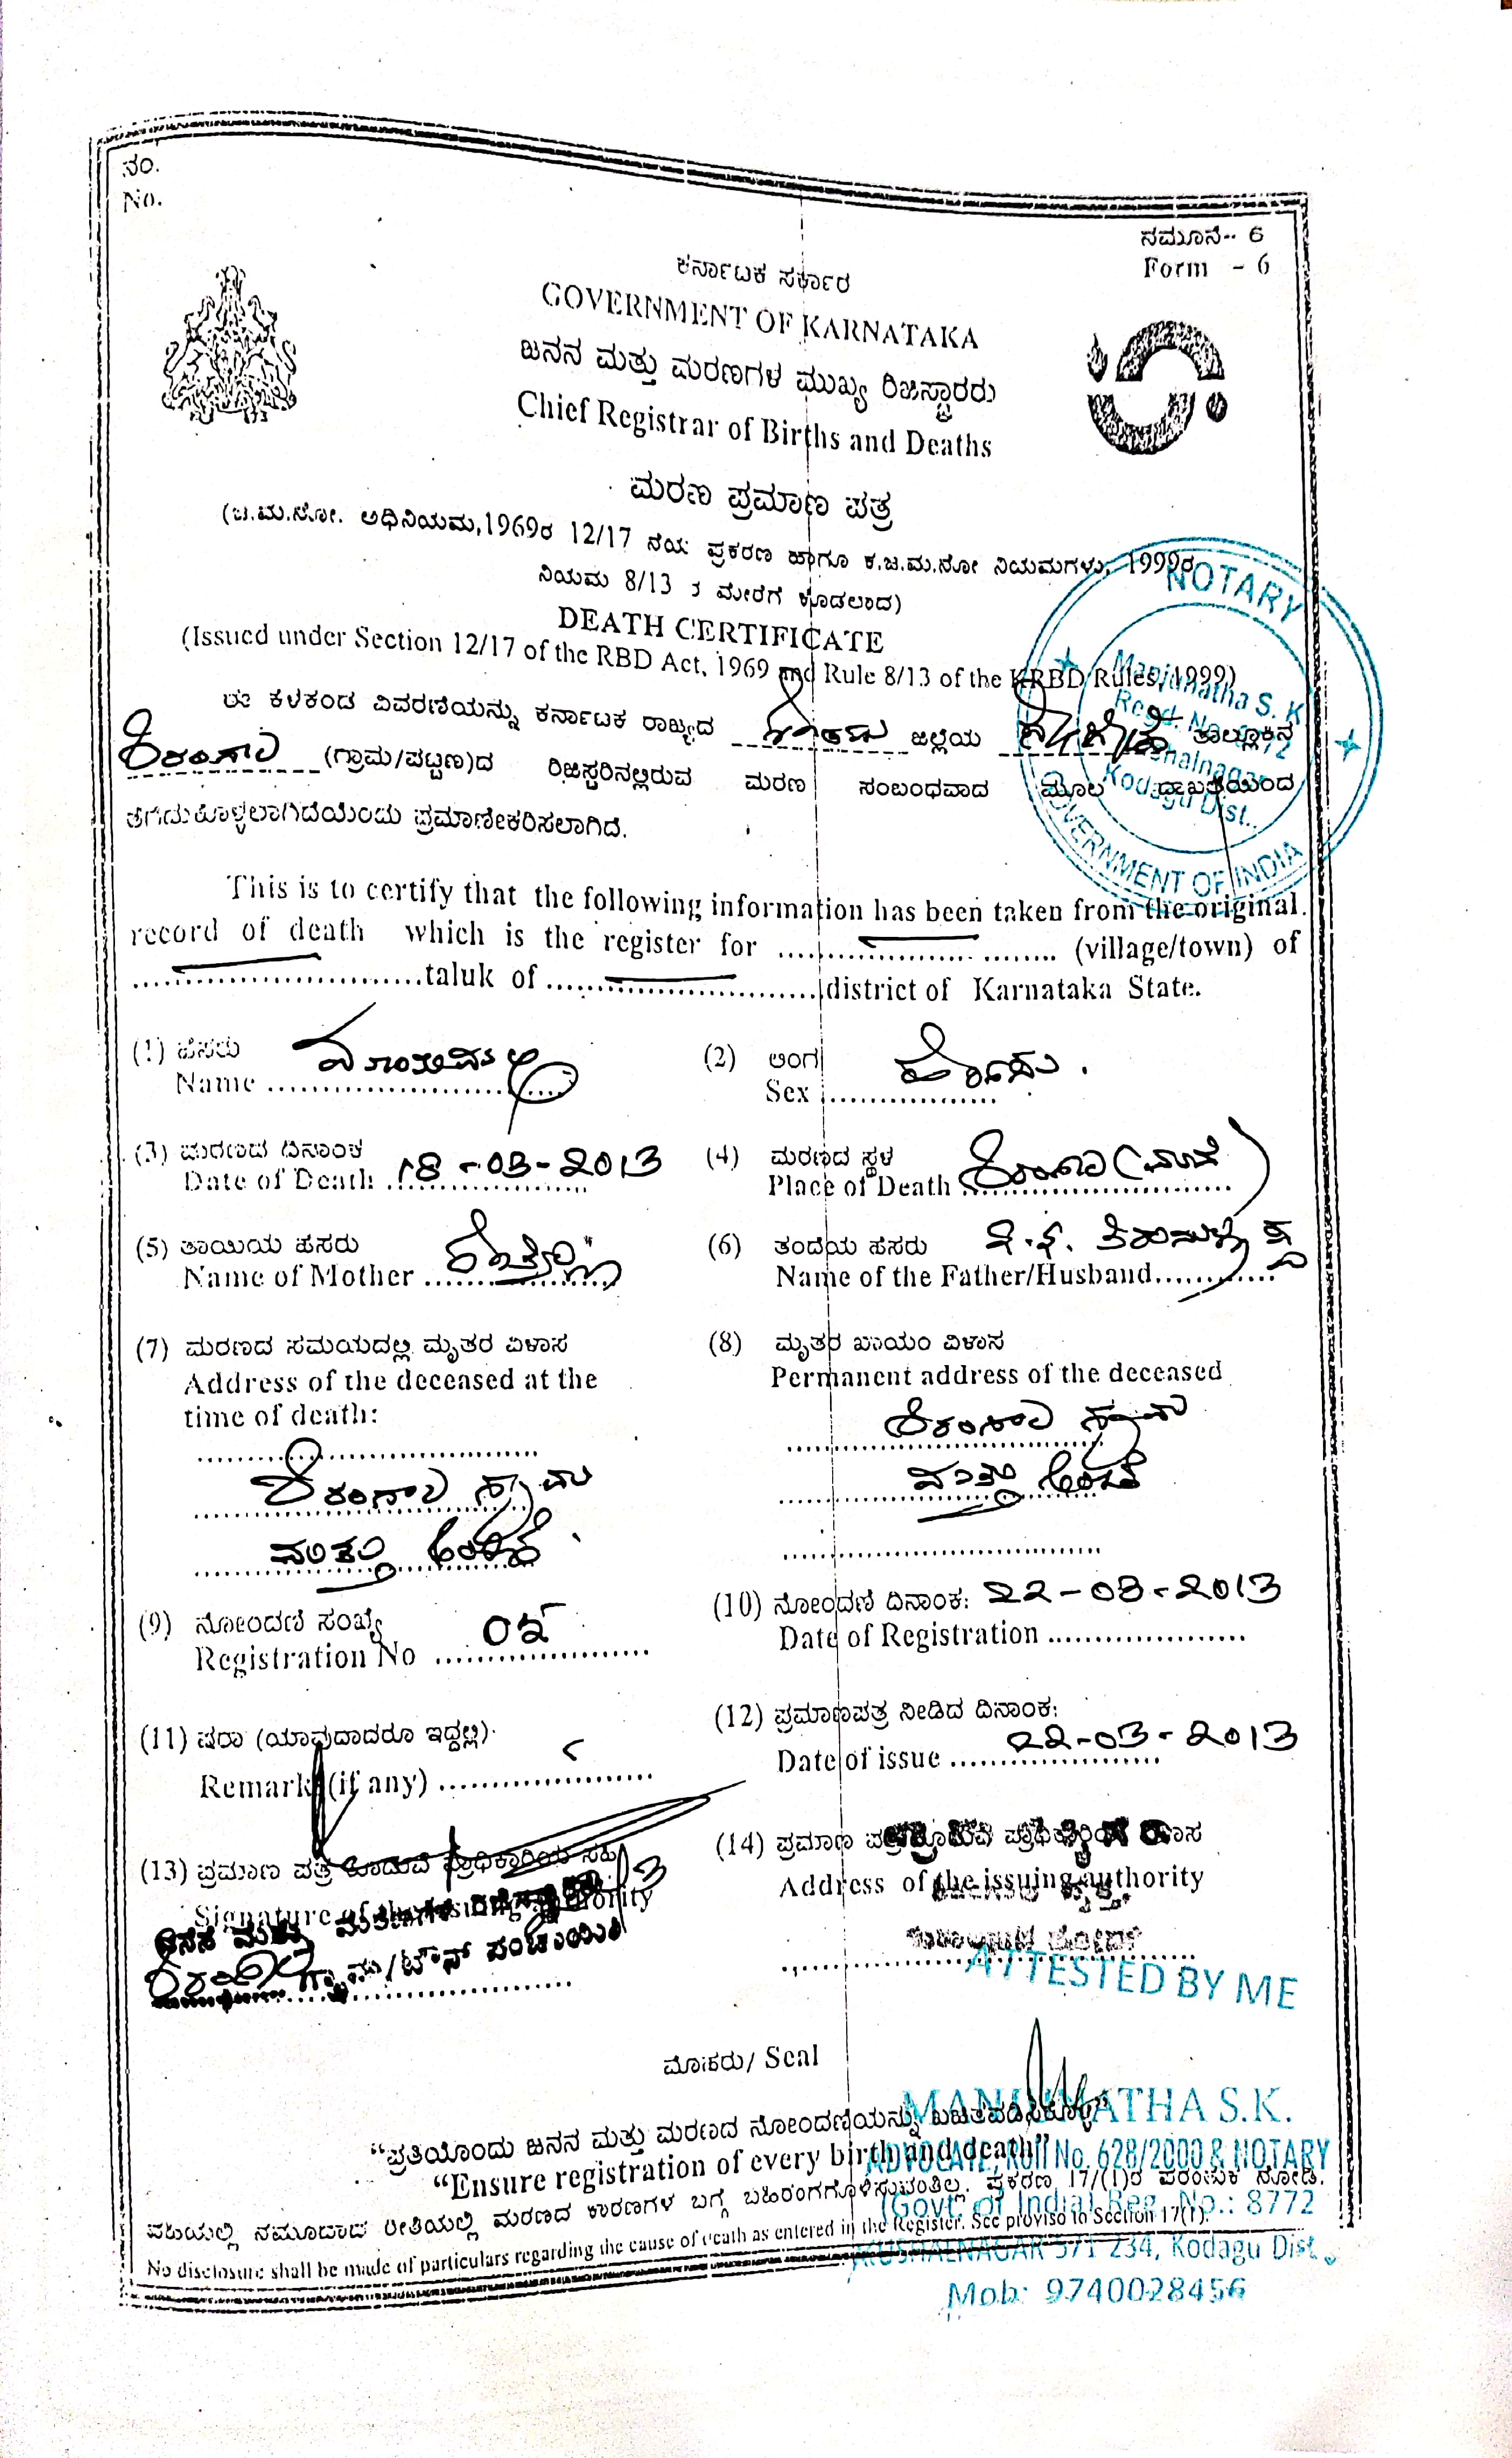 ನಂ.
No.
ನಮೂನೆ-- 6
Form - 6
ಕರ್ನಾಟಕ ಸರ್ಕಾರ
GOVERNMENT OF KARNATAKA
ಜನನ ಮತ್ತು ಮರಣಗಳ ಮುಖ್ಯ ರಿಜಿಸ್ಟ್ರಾರರು
Chief Registrar of Births and Deaths
ಮರಣ ಪ್ರಮಾಣ ಪತ್ರ
(ಜ.ಮ.ನೋ. ಅಧಿನಿಯಮ,1969ರ 12/17 ನೆಯ ಪ್ರಕರಣ ಹಾಗೂ ಕ.ಜ.ಮ.ನೋ ನಿಯಮಗಳು, 1999ರ
ನಿಯಮ 8/13 ರ ಮೇರೆಗೆ ಕೊಡಲಾದ)
DEATH CERTIFICATE
(Issued under Section 12/17 of the RBD Act, 1969 and Rule 8/13 of the KRBD Rules, 1999)
NOTARY
Manjunatha S. K
Kodagu Dist..
GOVERNMENT OF INDIA
ಈ ಕೆಳಕಂಡ ವಿವರಣೆಯನ್ನು ಕರ್ನಾಟಕ ರಾಜ್ಯದ ಕೊಡಗು ಜಿಲ್ಲೆಯ ತಾಲ್ಲೂಕಿನ
ಶಿರಂಗಾಲ (ಗ್ರಾಮ/ಪಟ್ಟಣ)ದ ರಿಜಿಸ್ಟರಿನಲ್ಲಿರುವ ಮರಣ ಸಂಬಂಧವಾದ ಮೂಲ ದಾಖಲೆಯಿಂದ
ತೆಗೆದುಕೊಳ್ಳಲಾಗಿದೆಯೆಂದು ಪ್ರಮಾಣೀಕರಿಸಲಾಗಿದೆ.
This is to certify that the following information has been taken from the original
record of death which is the register for .................... ........ (village/town) of
.............................taluk of ............................district of Karnataka State.
(1) ಹೆಸರು
Name
(2) ಲಿಂಗ ಹೆಂಗಸು.
Sex
(3) ಮರಣದ ದಿನಾಂಕ
Date of Death 18-03-2013
(4) ಮರಣದ ಸ್ಥಳ
Place of Death ಶಿರಂಗಾಲ (ಮನೆ)
(5) ತಾಯಿಯ ಹೆಸರು
Name of Mother
(6) ತಂದೆಯ ಹೆಸರು
Name of the Father/Husband
(7) ಮರಣದ ಸಮಯದಲ್ಲಿ ಮೃತರ ವಿಳಾಸ
Address of the deceased at the
time of death:
ಶಿರಂಗಾಲ ಗ್ರಾಮ
ಮತ್ತು ಅಂಚೆ.
(8) ಮೃತರ ಖಾಯಂ ವಿಳಾಸ
Permanent address of the deceased
ಶಿರಂಗಾಲ ಗ್ರಾಮ
ಮತ್ತು ಅಂಚೆ
(9) ನೋಂದಣಿ ಸಂಖ್ಯೆ
Registration No
(10) ನೋಂದಣಿ ದಿನಾಂಕ: 22-03-2013
Date of Registration
(11) ಷರಾ (ಯಾವುದಾದರೂ ಇದ್ದಲ್ಲಿ)
Remark (if any)
(12) ಪ್ರಮಾಣಪತ್ರ ನೀಡಿದ ದಿನಾಂಕ:
Date of issue 22-03-2013
(13) ಪ್ರಮಾಣ ಪತ್ರ ಕೊಡುವ ಪ್ರಾಧಿಕಾರಿಯ ಸಹಿ
Signature of the issuing authority
ಜನನ ಮತ್ತು ಮರಣಗಳ
ಶಿರಂಗಾಲ ಗ್ರಾಮ/ಟೌನ್ ಪಂಚಾಯಿತಿ
(14) ಪ್ರಮಾಣ ಪತ್ರ ಕೊಡುವ ಪ್ರಾಧಿಕಾರಿಯ ವಿಳಾಸ
Address of the issuing authority
ATTESTED BY ME
ಮೊಹರು/ Seal
MANJUNATHA S.K.
ADVOCATE, Roll No. 628/2000 & NOTARY
(Govt. of India) Reg. No.: 8772
KUSHALNAGAR 571 234, Kodagu Dist.
Mob: 9740028456
“ಪ್ರತಿಯೊಂದು ಜನನ ಮತ್ತು ಮರಣದ ನೋಂದಣಿಯನ್ನು ಖಚಿತಪಡಿಸಿಕೊಳ್ಳಿ”
“Ensure registration of every birth and death”
ವಹಿಯಲ್ಲಿ ನಮೂದಾದ ರೀತಿಯಲ್ಲಿ ಮರಣದ ಕಾರಣಗಳ ಬಗ್ಗೆ ಬಹಿರಂಗಗೊಳಿಸುವಂತಿಲ್ಲ. ಪ್ರಕರಣ 17/(1)ರ ಪರಂತುಕ ನೋಡಿ.
No disclosure shall be made of particulars regarding the cause of death as entered in the Register. See proviso to Section 17(1).